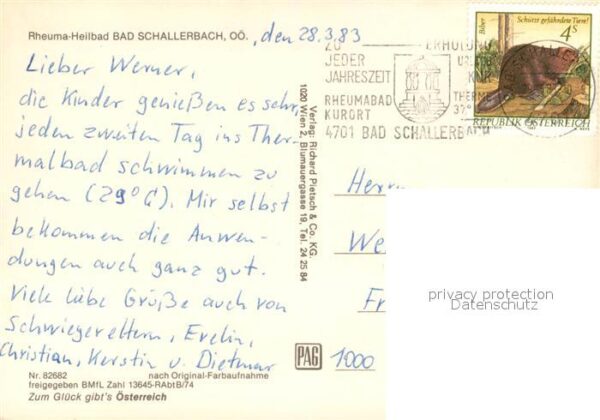 Rheuma-Heilbad BAD SCHALLERBACH, OÖ.
, den 28.3.83
Lieber Werner,
die Kinder genießen es sehr,
jeden zweiten Tag ins Ther-
malbad schwimmen zu
gehen (29°C). Mir selbst
bekommen die Anwen-
dungen auch ganz gut.
Viele liebe Grüße auch von
Schwiegereltern, Evelin,
Christian, Kerstin u. Dietmar
Nr. 82682 nach Original-Farbaufnahme
freigegeben BMfL Zahl 13645-RAbtB/74
Zum Glück gibt's Österreich
Verlag: Richard Pietsch & Co. KG.
1020 Wien 2, Blumauergasse 19, Tel. 24 25 84
PAG
ZU
JEDER
JAHRESZEIT
RHEUMABAD
KURORT
4701 BAD SCHALLERBACH
ERHOLUNG
KUR
THERME
37°
Biber
Schützt gefährdete Tiere!
4S
REPUBLIK ÖSTERREICH
Herrn
We
Fr
1000
privacy protection
Datenschutz